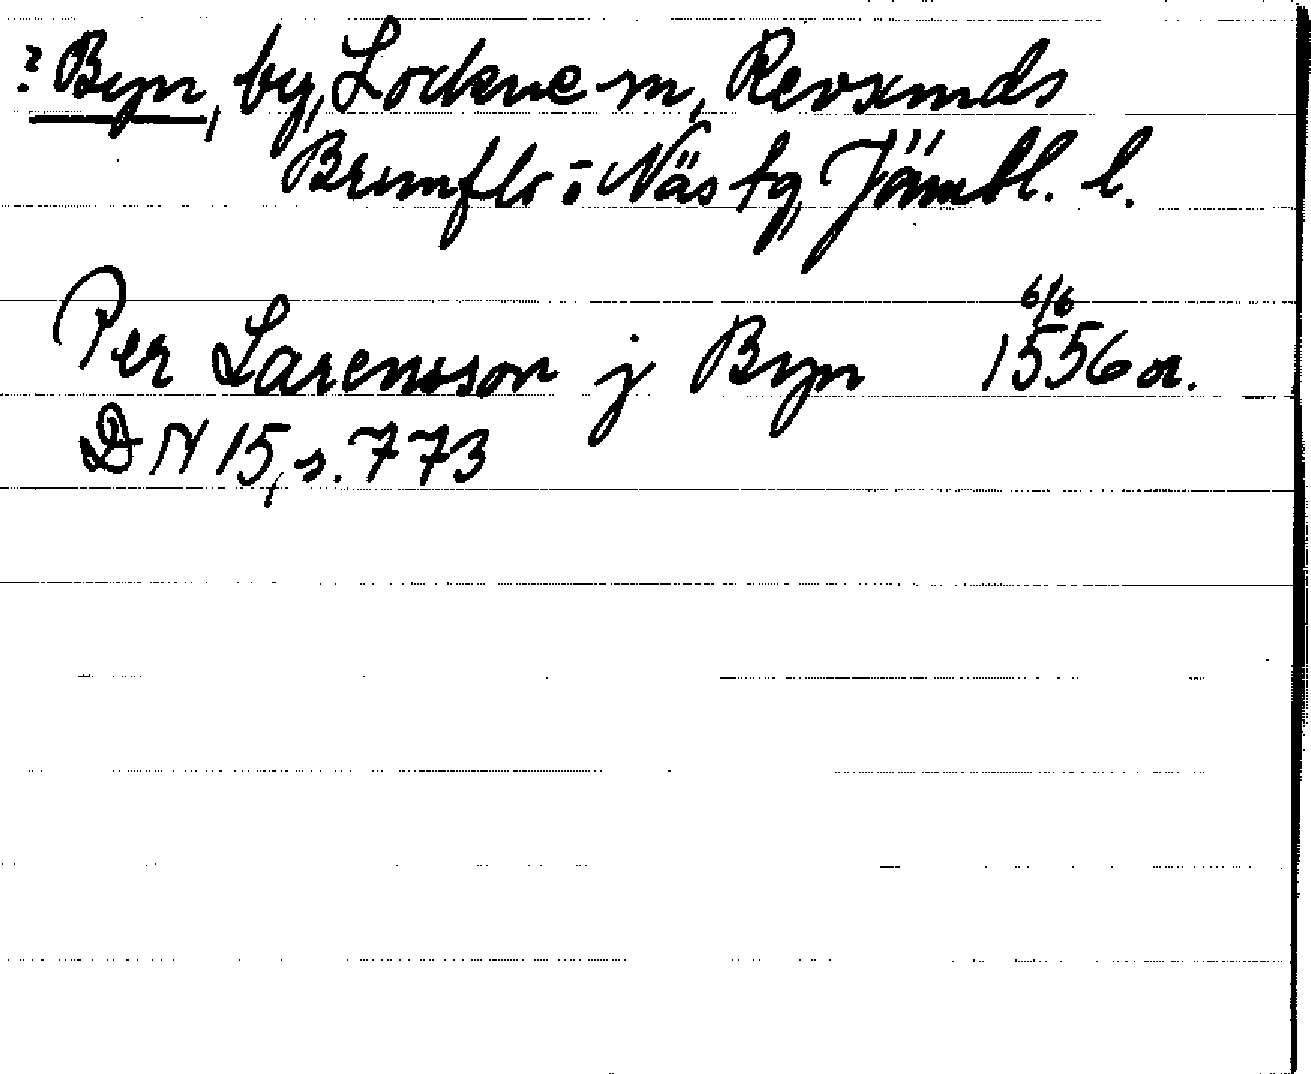 ? Byn, by, Lockne sn, Revsunds
Brunflo o Näs tg, Jämtl. l.
6/6
Per Larensson j Byn 1556 or.
DN 15, s. 773